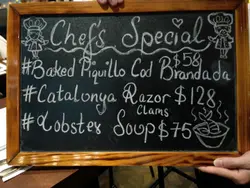 Chef's Special
$58
#Baked Piquillo Cod Brandada
#Catalonya Razor $128
Clams
#Lobster Soup $75